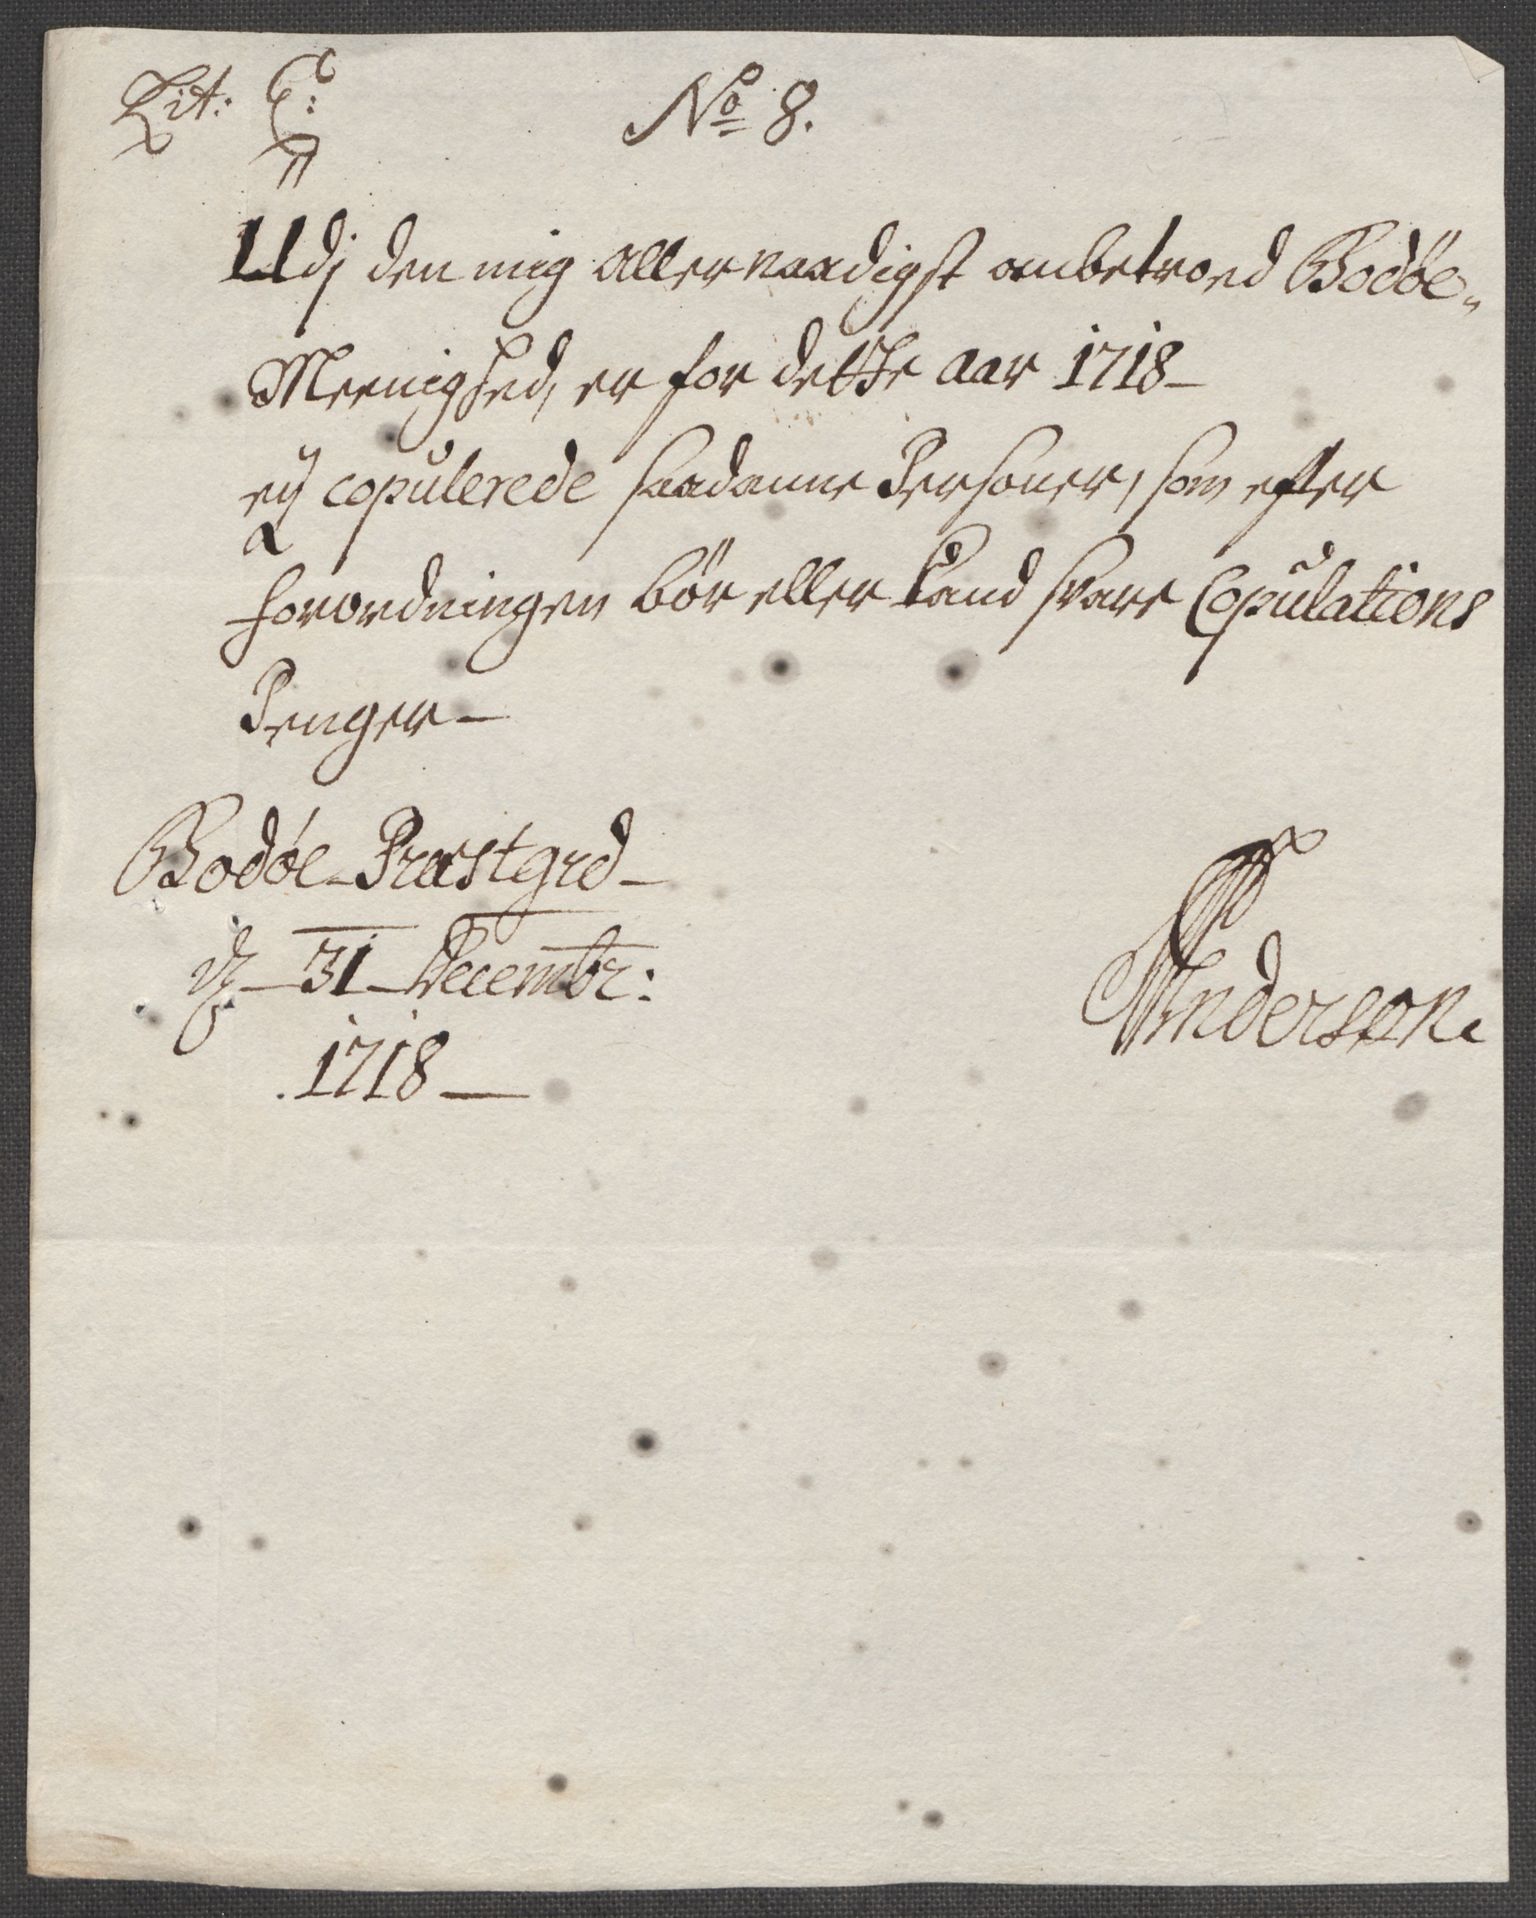 Lit: C: No 8.
Udj den mig allernaadigst anbetroed Bodøe-
Meenighed, er for dette aar 1718 -
eÿ copulerede saadanne Personer, som efter
forordningen bör eller kand svare Copulations
Penger -
Bodøe Præstgrd -
d 31 Decembr:
1718 -
Anderson.